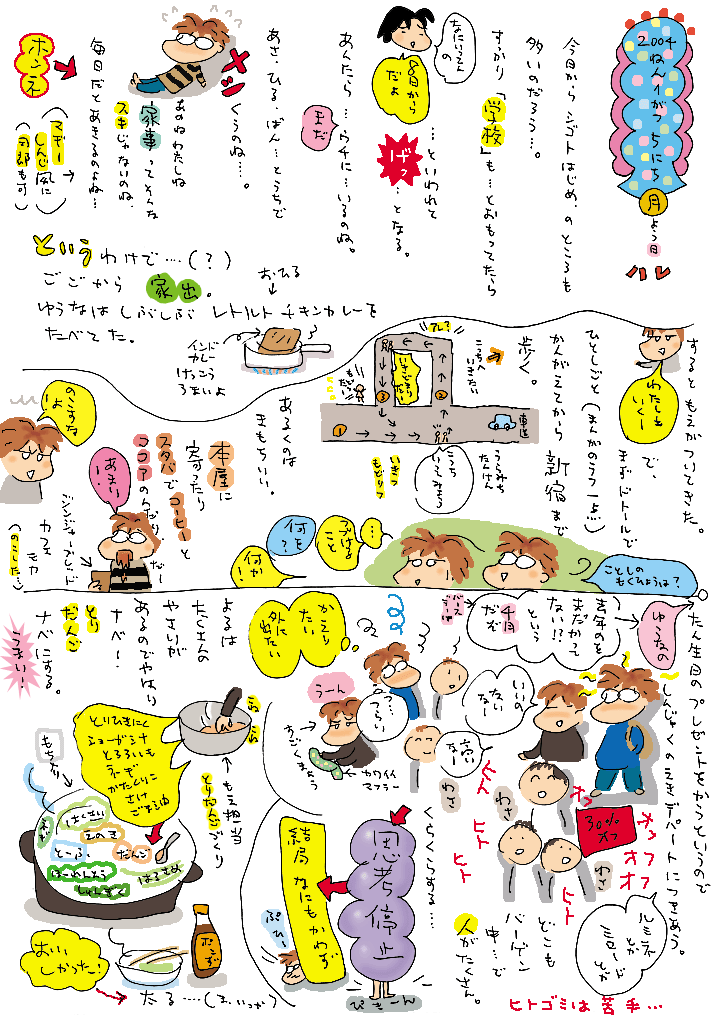 2004ねん1がつ5にち
月よう日
ハレ
今日からシゴトはじめ、のところも
多いのだろう…。
すっかり「学校」も…とおもってたら
なにいってんの
8日からだよ
…といわれて
げっ
…となる。
あんたら…ウチに…いるのね。
まだ
あさ、ひる、ばん…とうちで
くうのね…。
あのねわたしね
家事ってそんな
スキじゃないのね、
毎日だとあきるのよね…
ホンネ
(マギー
しんじ風に
司郎も可)
というわけで…(?)
ごごから家出。
おひる
ゆうなはしぶしぶレトルトチキンカレーを
たべてた。
インド
カレー
けっこう
うまいよ
するともえがついてきた。
わたしもいくー
で、
まずドトールで
ひとしごと(まんがのラフ一よ…)
かんがえてから新宿まで
歩く。
アレ?
こっちへ
いきたい
いきどまりだい
もどりたい
車道
うらみち
たんけん
こっち
いってみよう
いきつ
もどりつ
あるくのは
きもちいい。
本屋に
寄ったり
スタバでコーヒーと
ココアのんだりだー
あまり!
のこすなよ
ジンジャーブレッド
カフェ
モカ
(のこした…)
ことしの
もくひょうは?
…
つづけること
何を?
何か!
ゆうなの
たん生日のプレゼントをかうというので
しんじゅくのえきデパートにつきあう。
去年のを
まだかって
ない!?
という
バースデーは
千月
だぞ
いいの
ないなー
高いなー
かえりたい
外に出たい
うーん
つ、つらい
すごくまよう
カワイイ
マフラー
ルミネ
とか
ミロード
とか
30%
オフ
オフ
オフ
オフ
わさ
わさ
わさ
ヒト
ヒト
ヒト
どこも
バーゲン
中…で
人がたくさん。
ヒトゴミは苦手…
くらくらする…
思考停止
ぴきーん
結局なにもかわず
ぷひー
よるは
たくさんの
やさいが
あるのでやはり
ナベー。
とり
だんご
ナベにする。
うまい!
とりひきにく
ショーガ汁
とろろいも
ネギ
かたくりこ
さけ
ごま油
もえ担当
とりだんごづくり
もちろん
はくさい
えのき
ねぎ
とーふ
だんご
ほーれんそう
はるさめ
しゅんぎく
ポンズ
おいしかった!
たる…(ま、いっか)